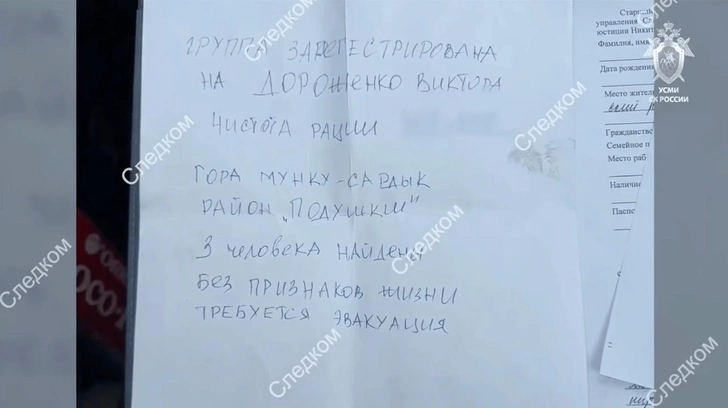 ГРУППА ЗАРЕГЕСТРИРОВАНА
НА ДОРОЖЕНКО ВИКТОРА
ЧИСТОТА РАЦИИ
ГОРА МУНКУ-САРДЫК
РАЙОН „ПОДУШКИ"
3 ЧЕЛОВЕКА НАЙДЕНЫ
БЕЗ ПРИЗНАКОВ ЖИЗНИ
ТРЕБУЕТСЯ ЭВАКУАЦИЯ
управления
юстиции Никит
Фамилия, имя
Дата рождения
Место жител
Гражданство
Семейное п
Место раб
Наличие
Паспо
УСМИ
СК РОССИИ
Следком
Следком
Следком
Следком
Следком
Следком
Следком
Следком